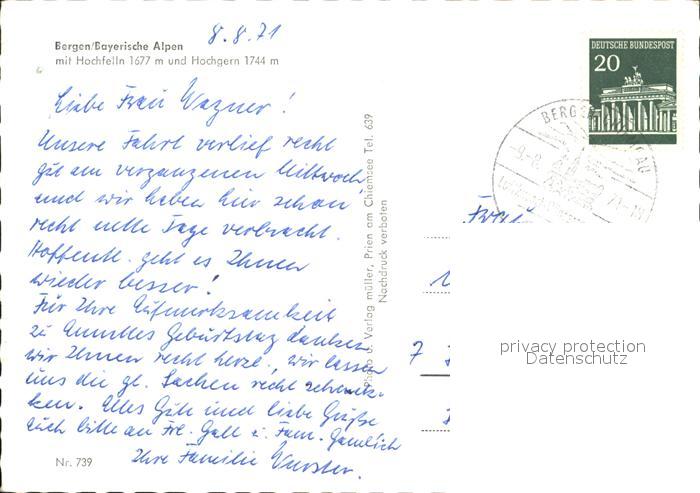 8.8.71
Bergen/Bayerische Alpen
mit Hochfelln 1677 m und Hochgern 1744 m
Liebe Frau Wagner!
Unsere Fahrt verlief recht
gut am vergangenen Mittwoch
und wir haben hier schon
recht nette Tage verbracht.
Hoffentl. geht es Ihnen
wieder besser!
Für Ihre Aufmerksamkeit
zu Geburtstag danken
wir Ihnen recht herzl., wir lassen
uns die gl. Sachen recht schmek-
ken. Alles Gute und liebe Grüße
auch bitte an Frl. Gall u. Fam.
Ihre Familie
Nr. 739
Photo u. Verlag müller, Prien am Chiemsee Tel. 639
Nachdruck verboten
DEUTSCHE BUNDESPOST
20
BERGEN
-9.-8.
71-
Frau
7
privacy protection
Datenschutz